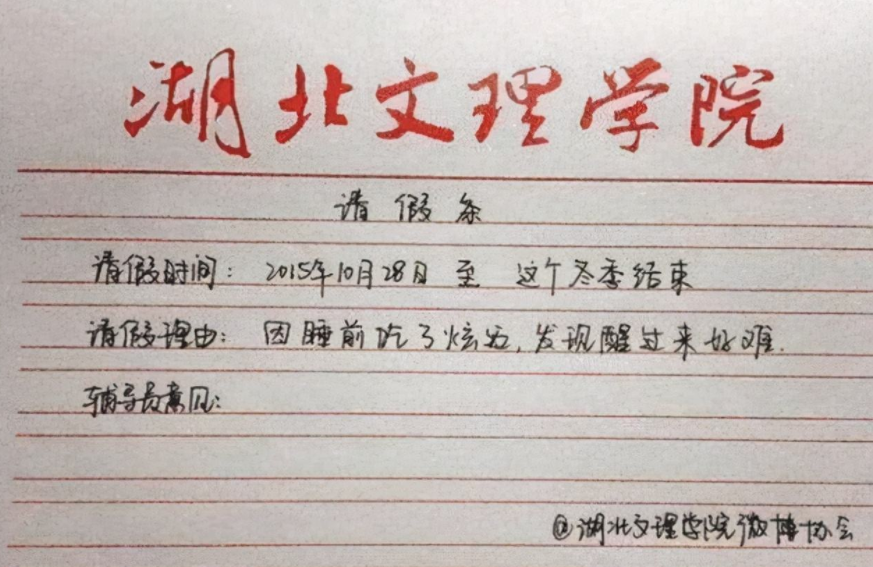 湖北文理学院
请假条
请假时间：2015年10月28日 至 这个冬季结束
请假理由：因睡前吃了炫迈，发现醒过来好难.
辅导员意见：
@湖北文理学院微博协会